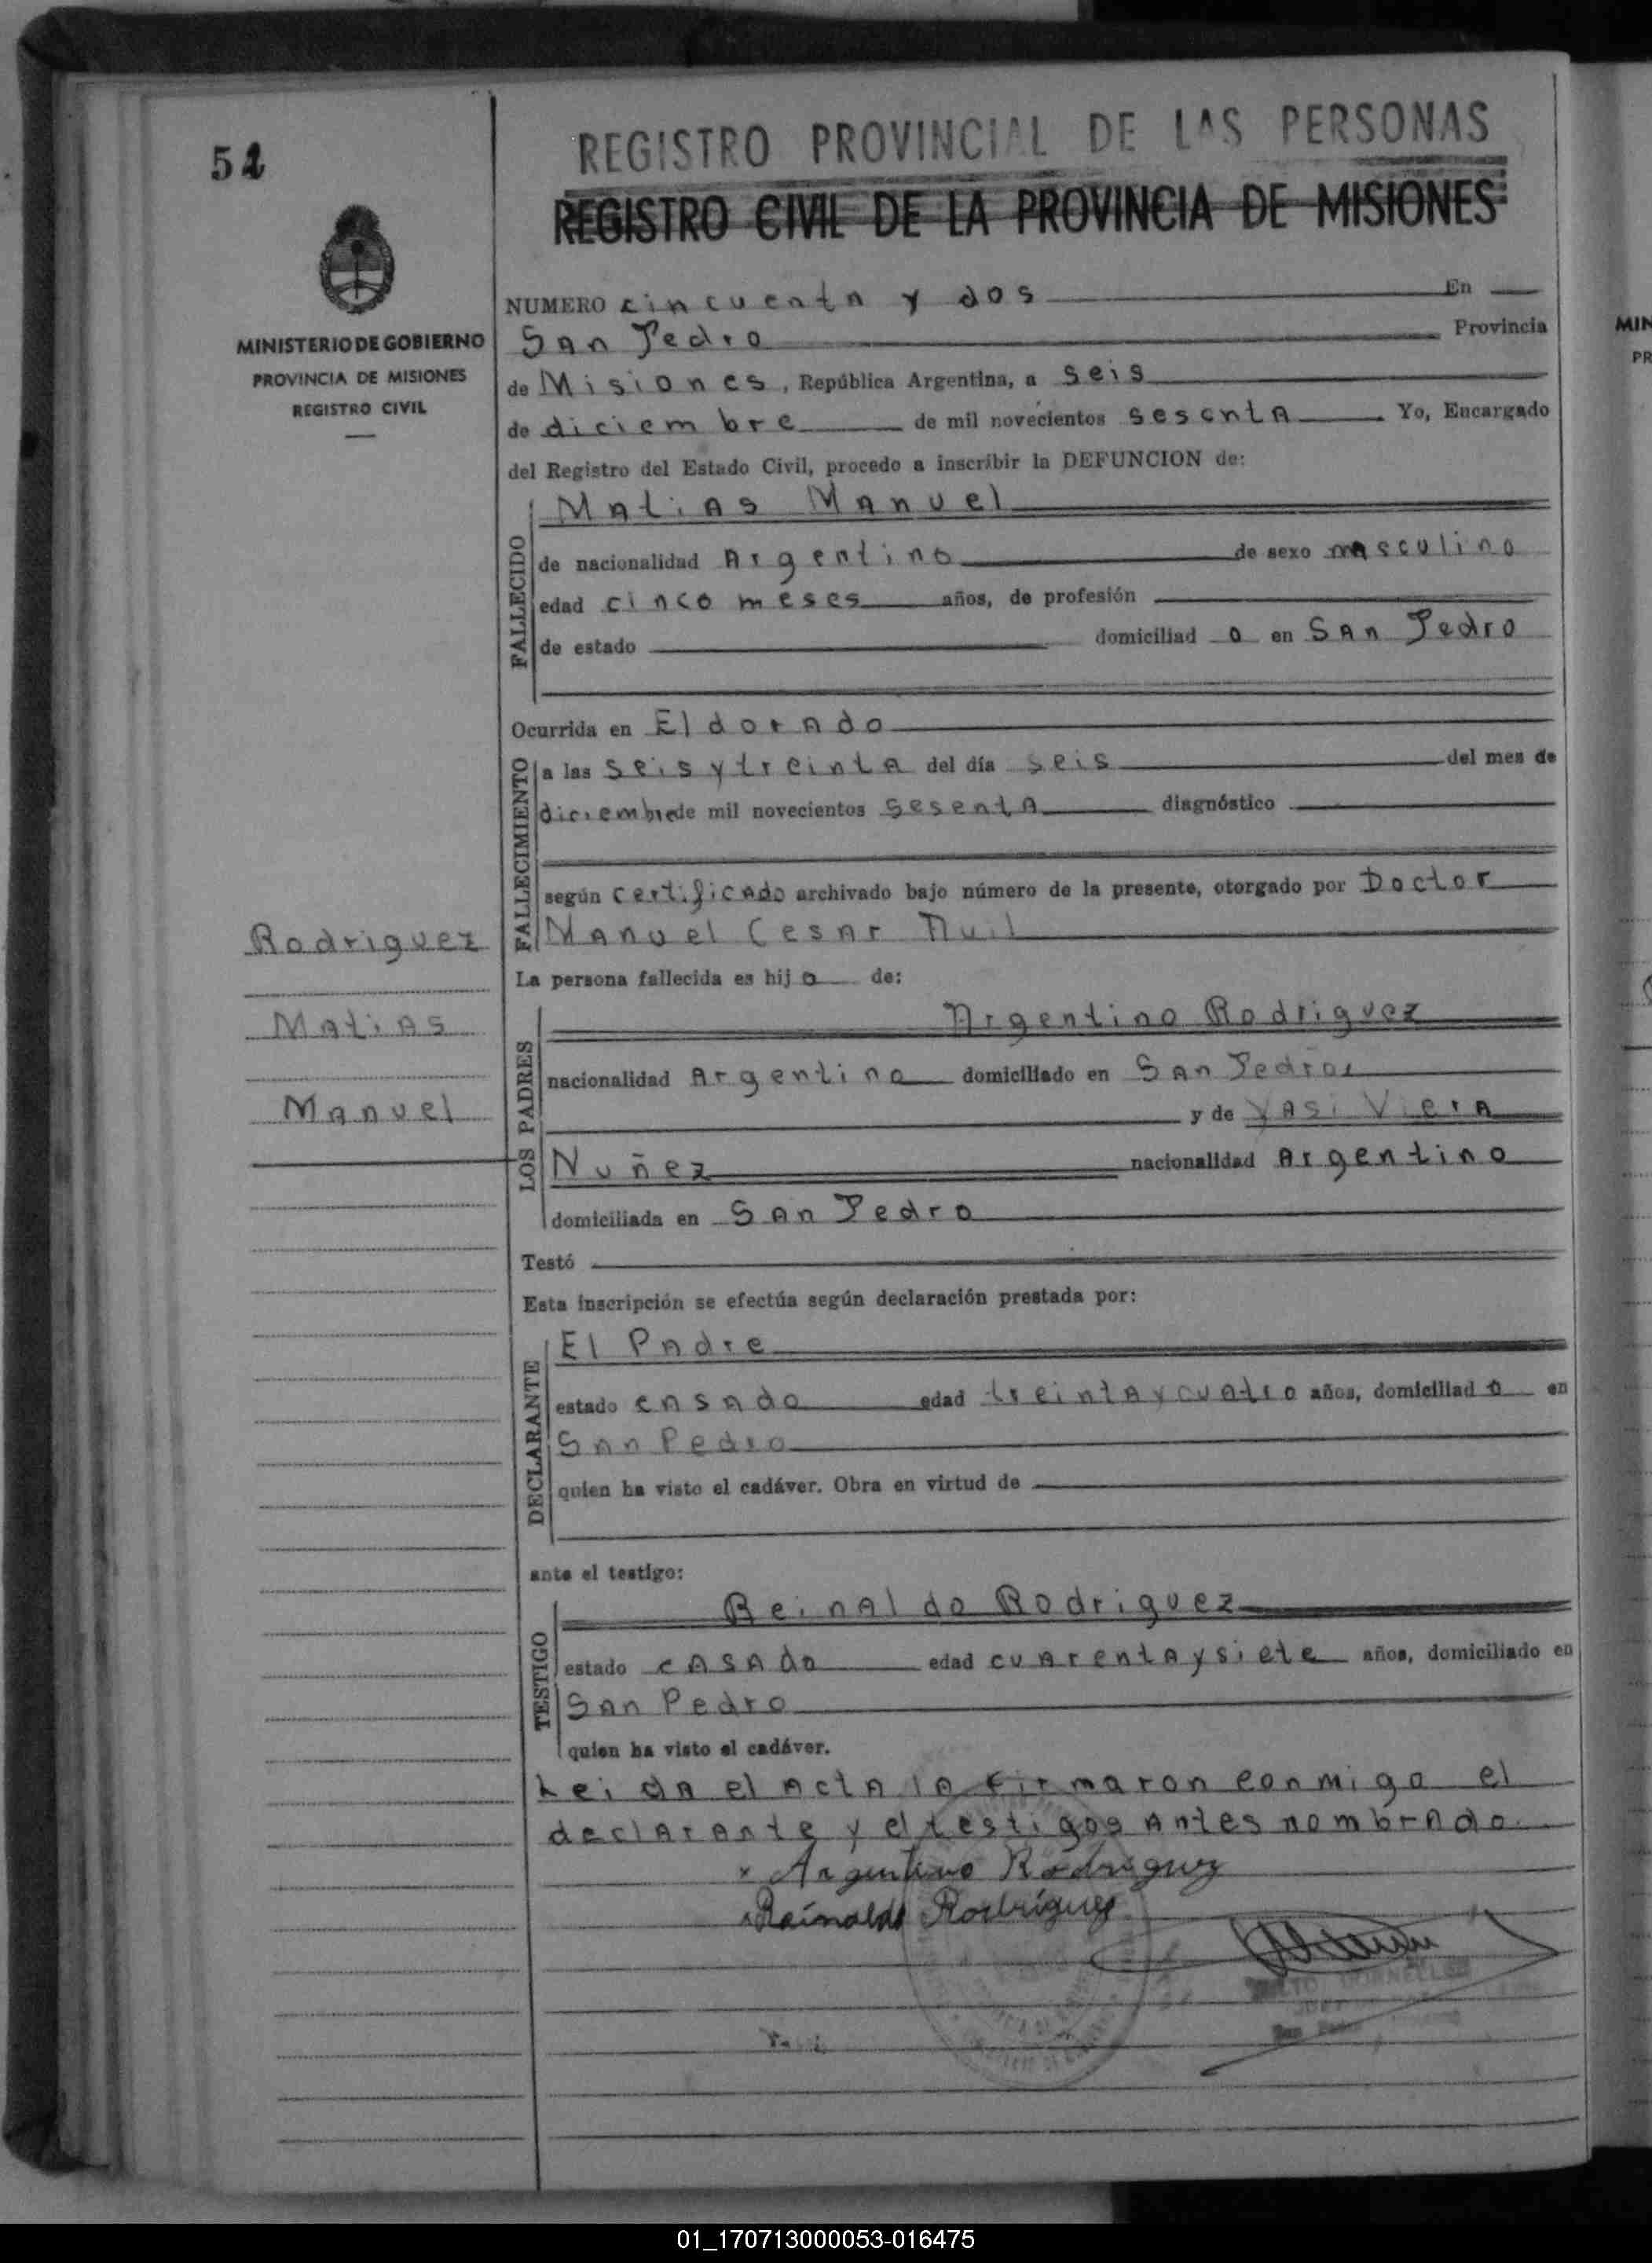 52
REGISTRO PROVINCIAL DE LAS PERSONAS
REGISTRO CIVIL DE LA PROVINCIA DE MISIONES
MINISTERIO DE GOBIERNO
PROVINCIA DE MISIONES
REGISTRO CIVIL
NUMERO cincuenta y dos En
San Pedro Provincia
de Misiones, República Argentina, a seis
de diciembre de mil novecientos sesenta. Yo, Encargado
del Registro del Estado Civil, procedo a inscribir la DEFUNCION de:
FALLECIDO
Matias Manuel
de nacionalidad Argentino de sexo masculino
edad cinco meses años, de profesión
de estado domiciliad o en San Pedro
Ocurrida en Eldorado
FALLECIMIENTO
a las seis y treinta del día seis del mes de
diciembre de mil novecientos sesenta diagnóstico
según certificado archivado bajo número de la presente, otorgado por Doctor
Manuel Cesar
Rodriguez
Matias
Manuel
La persona fallecida es hijo de:
LOS PADRES
Argentino Rodriguez
nacionalidad Argentino domiciliado en San Pedro
y de Yasi Viera
Nuñez nacionalidad Argentino
domiciliada en San Pedro
Testó
Esta inscripción se efectúa según declaración prestada por:
DECLARANTE
El Padre
estado casado edad treinta y cuatro años, domiciliad o en
San Pedro
quien ha visto el cadáver. Obra en virtud de
ante el testigo:
TESTIGO
Reinaldo Rodriguez
estado casado edad cuarenta y siete años, domiciliado en
San Pedro
quien ha visto el cadáver.
Leida el acta la firmaron conmigo el
declarante y el testigos antes nombrado.
x Argentino Rodriguez
x Reinaldo Rodríguez
MIN
PR
01_170713000053-016475